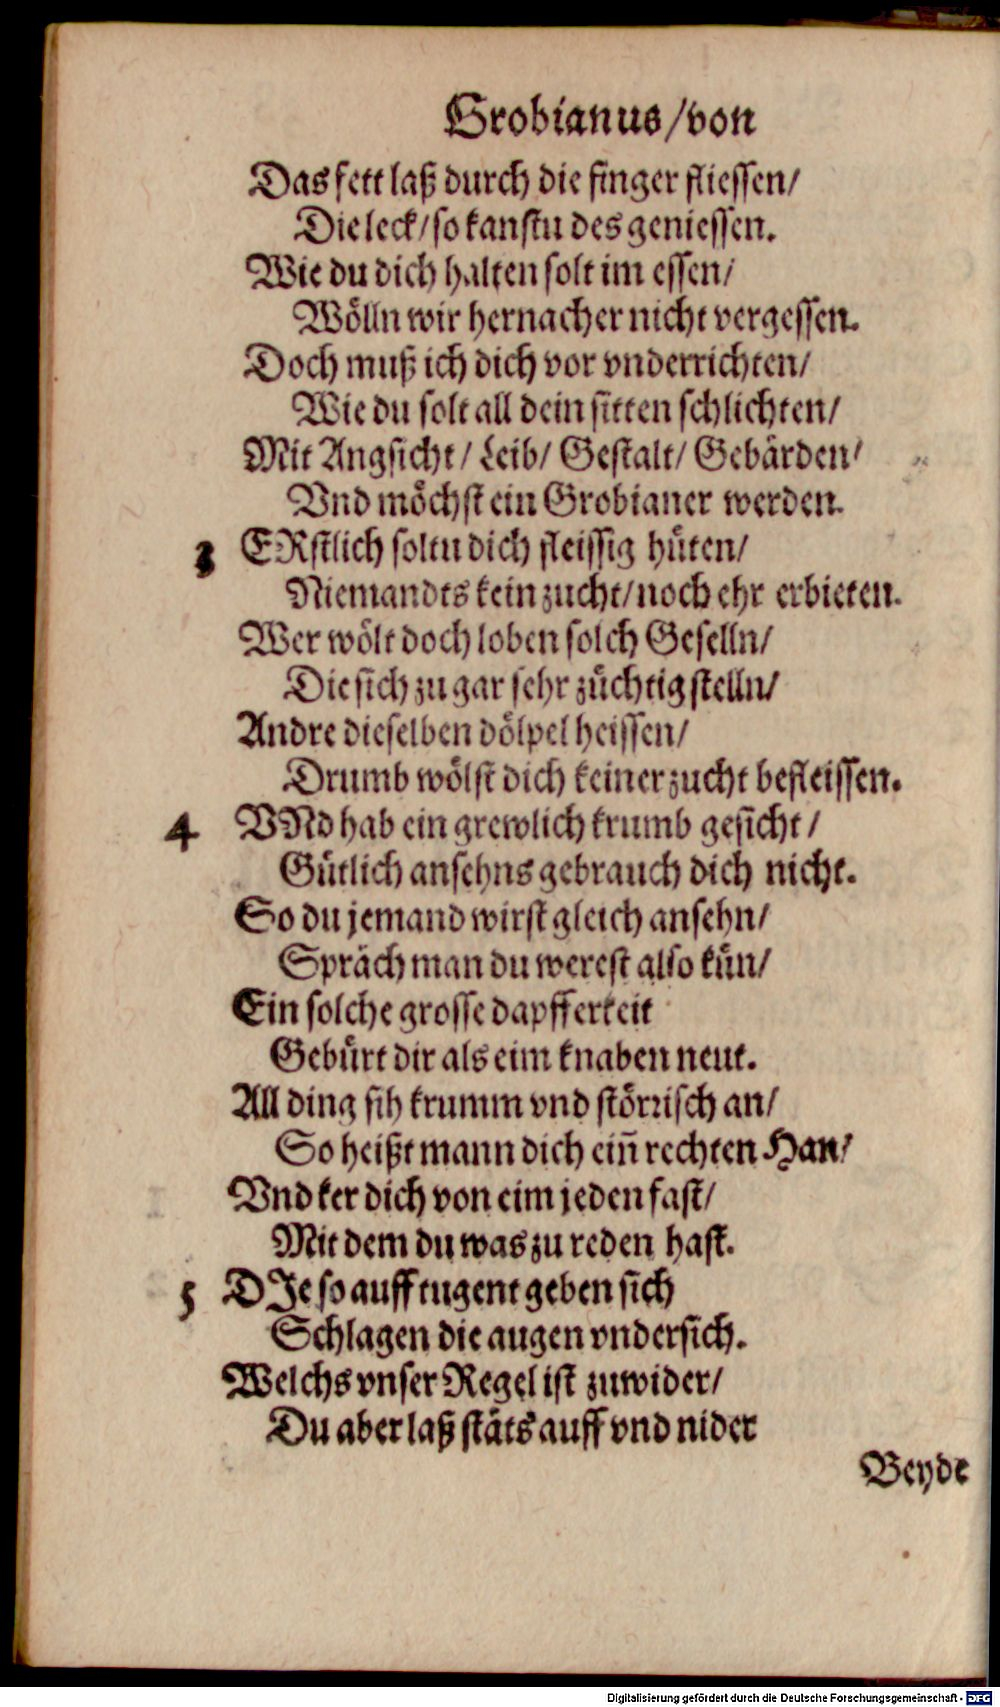 Grobianus/von
Das fett laß durch die finger fliessen/
Die leck/ so kanstu des geniessen.
Wie du dich halten solt im essen/
Wölln wir hernacher nicht vergessen.
Doch muß ich dich vor vnderrichten/
Wie du solt all dein sitten schlichten/
Mit Angsicht/ Leib/ Gestalt/ Gebärden/
Vnd möchst ein Grobianer werden.
3 ERstlich soltu dich fleissig hüten/
Niemandts kein zucht/ noch ehr erbieten.
Wer wölt doch loben solch Geselln/
Die sich zu gar sehr züchtig stelln/
Andre dieselben dölpel heissen/
Drumb wölst dich keiner zucht befleissen.
4 VNd hab ein grewlich krumb gesicht/
Gütlich ansehns gebrauch dich nicht.
So du jemand wirst gleich ansehn/
Spräch man du werest also kün/
Ein solche grosse dapfferkeit
Gebürt dir als eim knaben neut.
All ding sih krumm vnd störrisch an/
So heißt mann dich ein̄ rechten Han/
Vnd ker dich von eim jeden fast/
Mit dem du was zu reden hast.
5 DIe so auff tugent geben sich
Schlagen die augen vndersich.
Welchs vnser Regel ist zuwider/
Du aber laß stäts auff vnd nider
Beyde
Digitalisierung gefördert durch die Deutsche Forschungsgemeinschaft - DFG